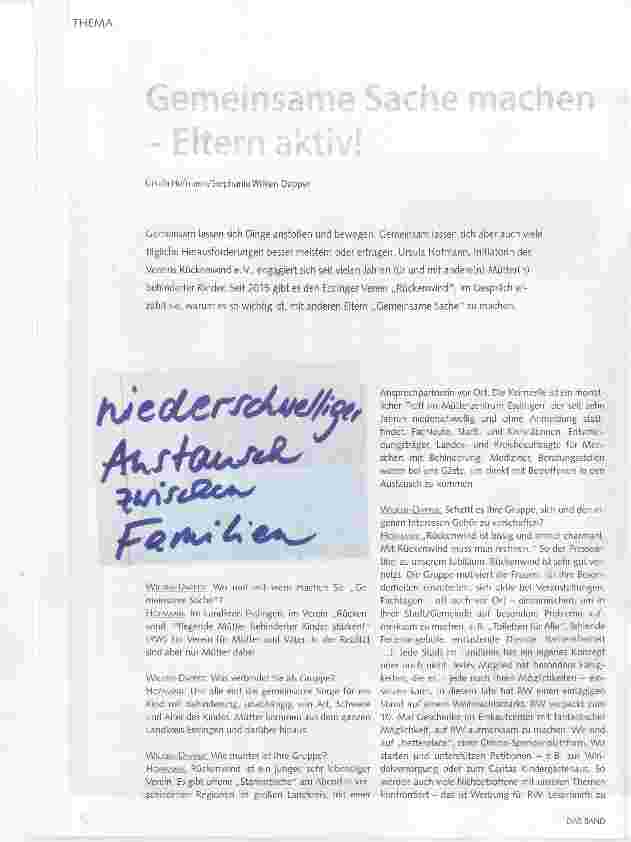 THEMA
Gemeinsame Sache machen
– Eltern aktiv!
Ursula Hofmann/Stephanie Wilken-Dapper
Gemeinsam lassen sich Dinge anstoßen und bewegen. Gemeinsam lassen sich aber auch viele
tägliche Herausforderungen besser meistern oder ertragen. Ursula Hofmann, Initiatorin des
Vereins Rückenwind e.V., engagiert sich seit vielen Jahren für und mit andere(n) Mütter(n)
behinderter Kinder. Seit 2015 gibt es den Esslinger Verein „Rückenwind“. Im Gespräch er-
zählt sie, warum es so wichtig ist, mit anderen Eltern „Gemeinsame Sache“ zu machen.
niederschwelliger
Austausch
zwischen
Familien
Wilken-Dapper: Wo und mit wem machen Sie „Ge-
meinsame Sache“?
Hofmann: Im Landkreis Esslingen, im Verein „Rücken-
wind, Pflegende Mütter behinderter Kinder stärken!“
Ein Verein für Mütter und Väter. In der Realität
sind aber nur Mütter dabei.
Wilken-Dapper: Was verbindet Sie als Gruppe?
Hofmann: Uns alle eint die gemeinsame Sorge für ein
Kind mit Behinderung, unabhängig von Art, Schwere
und Alter des Kindes. Mütter kommen aus dem ganzen
Landkreis Esslingen und darüber hinaus.
Wilken-Dapper: Wie munter ist Ihre Gruppe?
Hofmann: Rückenwind ist ein junger, sehr lebendiger
Verein. Es gibt offene „Stammtische“ am Abend in ver-
schiedenen Regionen im großen Landkreis, mit einer
Ansprechpartnerin vor Ort. Die ist ein monat-
licher Treff im Mütterzentrum Esslingen, der seit zehn
Jahren niederschwellig und ohne Anmeldung statt-
findet. Fachleute, Stadt- und Kreisrätinnen, Entschei-
dungsträger, Landes- und Kreisbeauftragte für Men-
schen mit Behinderung, Mediziner, Beratungsstellen
waren bei uns Gäste, um direkt mit Betroffenen in den
Austausch zu kommen.
Wilken-Dapper: Schafft es Ihre Gruppe, sich und den ei-
genen Interessen Gehör zu verschaffen?
Hofmann: „Rückenwind ist bissig und immer charmant.
Mit Rückenwind muss man rechnen.“ So der Presse
zu unserem Jubiläum. Rückenwind ist sehr gut ver-
netzt. Die Gruppe motiviert die Frauen, für ihre Beson-
derheiten einzustehen, sich aktiv bei Veranstaltungen,
Fachtagen – oft auch vor Ort – einzumischen, um in
ihrer Stadt/Gemeinde auf besondere Probleme auf-
merksam zu machen, z.B. „Toiletten für Alle“, fehlende
Ferienangebote, entlastende Dienste, Barrierefreiheit
... Jede Stadt im Landkreis hat ein eigenes Konzept
oder auch nicht. Jedes Mitglied hat besondere Fähig-
keiten, die es – jede nach ihren Möglichkeiten – ein-
setzen kann. In diesem Jahr hat RW einen eintägigen
Stand auf einem Weihnachtsmarkt. RW verpackt zum
10. Mal Geschenke im Einkaufcenter mit fantastischer
Möglichkeit, auf RW aufmerksam zu machen. Wir sind
auf „betterplace“, einer Online-Spendenplattform. Wir
starten und unterstützen Petitionen – z.B. zur Win-
delversorgung oder zum Caritas Kindergartenaus. So
werden auch viele Nichtbetroffene mit unseren Themen
konfrontiert – das ist Werbung für RW. Leserbriefe zu
DAS BAND